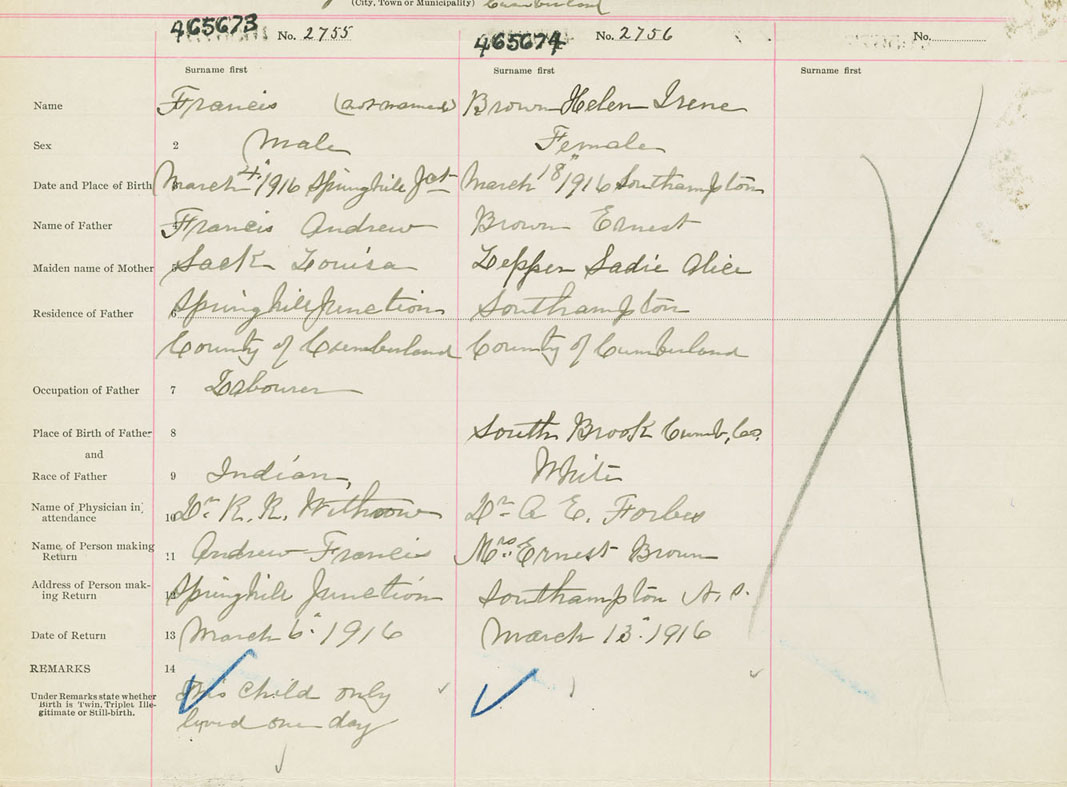 (City, Town or Municipality) Cumberland
465673 No. 2755 465674 No. 2756 No.
Surname first Surname first Surname first
Name Francis (not named) Brown Helen Irene
Sex 2 Male Female
Date and Place of Birth March 4" 1916 Springhill Jct March 18" 1916 Southampton
Name of Father Francis Andrew Brown Ernest
Maiden name of Mother Sack Louisa Lepper Sadie Alice
Residence of Father 6 Springhill Junction Southampton
County of Cumberland County of Cumberland
Occupation of Father 7 Labourer
Place of Birth of Father 8 South Brook Cumb, Co,
and
Race of Father 9 Indian, White
Name of Physician in attendance 10 Dr R. R. Dr A E. Forbes
Name of Person making Return 11 Andrew Francis Mrs. Ernest Brown
Address of Person making Return 12 Springhill Junction Southampton N. S.
Date of Return 13 March 6" 1916 March 13" 1916
REMARKS 14
Under Remarks state whether Birth is Twin, Triplet Illegitimate or Still-birth. This child only
lived one day